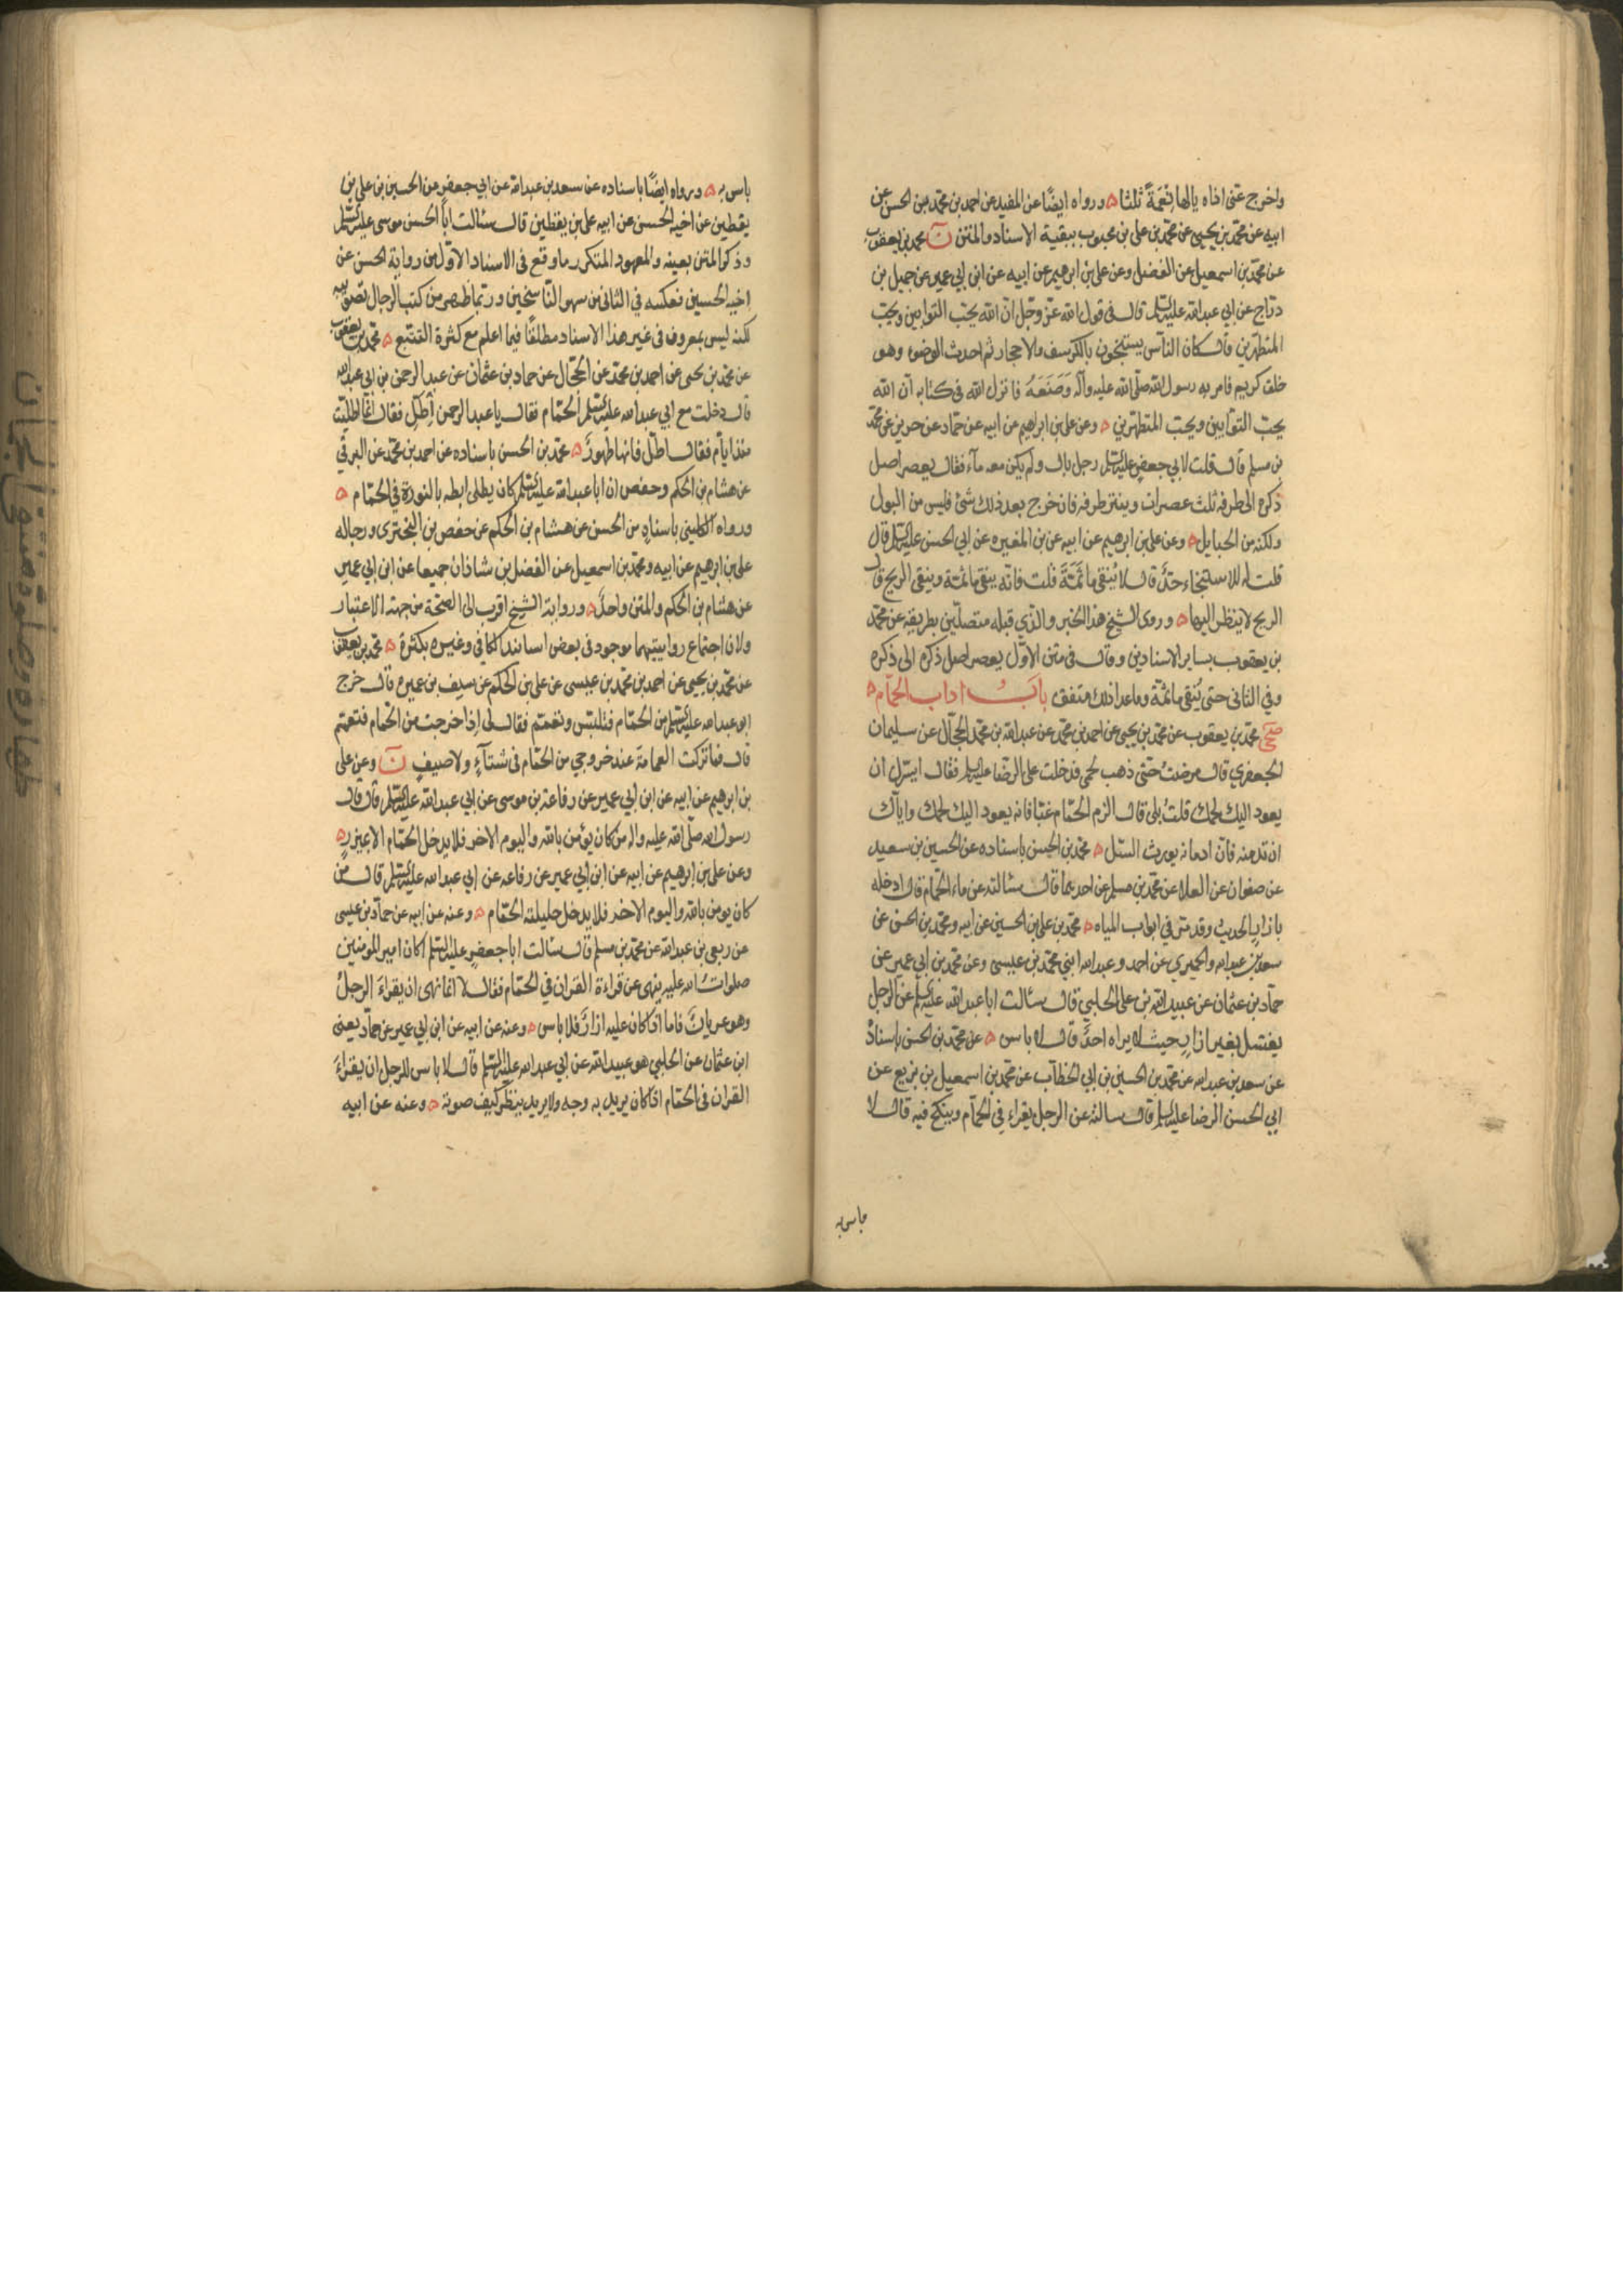 واخرج عنى اذاه يا لها نعمَةً ثلثا ه ورواه ايضًا عن المفيد عن احمد بن محمد بن الحسن عن
ابيه عن محمد بن يحيى عن محمد بن على بن محبوب ببقية الاسناد والمتن ن محمد بن يعقوب
عن محمد بن اسمعيل عن الفضل وعن على بن ابرهيم عن ابيه عن ابن ابي عمير عن جميل بن
درّاج عن ابي عبد الله عليه السلم قال في قول الله عزّ وجلّ انّ الله يحبّ التوابين ويحبّ
المتطهّرين قال كان النّاس يستنجون بالكرسف والاحجار ثم احدث الوضوء وهو
خلق كريم فامر به رسول الله صلّى الله عليه وآله وَصَنَعَهُ فانزل الله في كتابه انّ الله
يحبّ التوّابين ويحبّ المتطهّرين ه وعن على بن ابراهيم عن ابيه عن حمّاد عن حريز عن محمّد
بن مسلم قال قلت لابي جعفر عليه السلم رجل بال ولم يكن معه مآء فقال يعصر اصل
ذكره الى طرفه ثلث عصرات وينتر طرفه فان خرج بعد ذلك شئ فليس من البول
ولكنه من الحبايل ه وعن على بن ابرهيم عن ابيه عن بن المغيره عن ابي الحسن عليه السلم قال
قلت له للاستنجاء حدَّ قال لا يُنقى ما ثَمَّةَ قلت فانّه ينقى ما ثمّة ويبقى الريح قال
الريح لا ينظر اليها ه وروى الشيخ هذا الخبر والّذي قبله متصلّين بطريقه عن محمّد
بن يعقوب بساير الاسنادين وقال في متن الاوّل يعصر اصل ذكره الى ذكره
وفي الثانى حتى يُنقى ما ثمّة وما عدا ذلك متفق بابُ اداب الحمّام ه
صحى محمّد بن يعقوب عن محمّد بن يحيى عن احمد بن محمّد عن عبد الله بن محمّد الحجّال عن سليمان
الجعفري قال مرضتُ حتّى ذهب لحمى فدخلت على الرضا عليه السلم فقال ايسرّك ان
يعود اليك لحمك قلتُ بلى قال الزم الحمّام غبّا فانه يعود اليك لحمك وايآك
ان تدمنه فانّ ادمانه يورث السّل ه محمّد بن الحسن باسناده عن الحسين بن سعيد
عن صفوان عن العلا عن محمّد بن مسلم عن احدهما قال سئالته عن ماء الحمّام قال ادخله
بازارٍ الحديث وقد مرّ في ابواب المياه ه محمّد بن على بن الحسين عن ابيه ومحمّد بن الحسن عن
سعد بن عبد الله والحميري عن احمد وعبد الله ابنى محمّد بن عيسى وعن محمّد بن ابى عمير عن
حمّاد بن عثمان عن عبيد الله بن على الحلبي قال سئالت ابا عبد الله عليه السلم عن الرجل
يغتسل بغير ازارٍ حيث لا يراه احدٌ قال لا باس ه عن محمّد بن الحسن باسناده
عن سعد بن عبد الله عن محمّد بن الحسين بن ابي الخطّاب عن محمّد بن اسمعيل بن بزيع عن
ابي الحسن الرضا عليه السلم قال سالته عن الرجل يقراء في الحمّام وينكح فيه قال لا
باس به
باس به ه ورواه ايضًا باسناده عن سعد بن عبد الله عن ابي جعفر عن الحسين بن على بن
يقطين عن اخيه الحسن عن ابيه على بن يقطين قال سئالت ابا الحسن موسى عليه السلم
وذكر المتن بعينه والمعهود المتكرر ما وقع في الاسناد الاوّل من رواية الحسن عن
اخيه الحسين فعكسه في الثانى من سهو النّاسخين وربّما ظهر من كتب الرجال تصويبه
لكنه ليس بمعروف في غير هذا الاسناد مطلقًا فيما اعلم مع كثرة التتبع ه محمّد بن يعقوب
عن محمّد بن يحيى عن احمد بن محمّد عن الحجّال عن حماد بن عثمان عن عبد الرحمن بن ابى عبد الله
قال دخلت مع ابي عبد الله عليه السلم الحمّام فقال يا عبد الرحمن اُطّلِ فقال انّما اطلّيت
منذ ايام فقال اطّل فانها طهورٌ ه محمّد بن الحسن باسناده عن احمد بن محمّد عن البرقي
عن هشام بن الحكم وحفص ان ابا عبد الله عليه السلم كان يطلى ابطه بالنورة في الحمّام ه
ورواه الكلينى باسنادٍ من الحسن عن هشام بن الحكم عن حفص بن البخترى ورجاله
على بن ابرهيم عن ابيه ومحمّد بن اسمعيل عن الفضل بن شاذان جميعا عن ابن ابي عمير
عن هشام بن الحكم والمتن واحدٌ ه ورواية الشيخ اقرب الى الصحّة من جهة الاعتبار
ولان اجتماع روايتيهما موجود في بعض اسانيد الكافي وغيره بكثرة ه محمّد بن يعقوب
عن محمّد بن يحيى عن احمد بن محمّد بن عيسى عن على بن الحكم عن سيف بن عميره قال خرج
ابو عبد الله عليه السلم من الحمّام فتلبّس وتعمّم فقال لى اذا خرجت من الحّمام فتعمّم
قال فما تركت العمامة عند خروجي من الحمّام في شتآءٍ ولا صيفٍ ن وعن على
بن ابرهيم عن ابيه عن ابن ابي عمير عن رفاعة بن موسى عن ابي عبد الله عليه السلم قال قال
رسول الله صلّى الله عليه واله من كان يؤمن بالله واليوم الاخر فلا يدخل الحمّام الا بميزرٍ ه
وعن على بن ابرهيم عن ابيه عن ابن ابي عمير عن رفاعه عن ابي عبد الله عليه السلم قال من
كان يومن بالله واليوم الاخر فلا يدخل حليلته الحمّام ه وعنه عن ابيه عن حمّاد بن عيسى
عن ربعي بن عبد الله عن محمّد بن مسلم قال سئالت ابا جعفر عليه السلم اكان امير المومنين
صلوات الله عليه ينهى عن قراءة القران في الحمّام فقال لا انما نهى ان يقراءَ الرجلُ
وهو عريانٌ فاما اذا كان عليه ازارٌ فلا باس ه وعنه عن ابيه عن ابن ابي عمير عن حمّاد يعنى
ابن عثمان عن الحلبي هو عبيد الله عن ابي عبد الله عليه السلم قال لا باس للرجل ان يقراءَ
القران في الحمّام اذا كان يريد به وجه ولا يريد ينظر كيف صوته ه وعنه عن ابيه